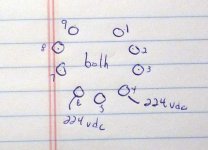 9 1
8 both 2
7 3
6 5 4
224 vdc
224 vdc